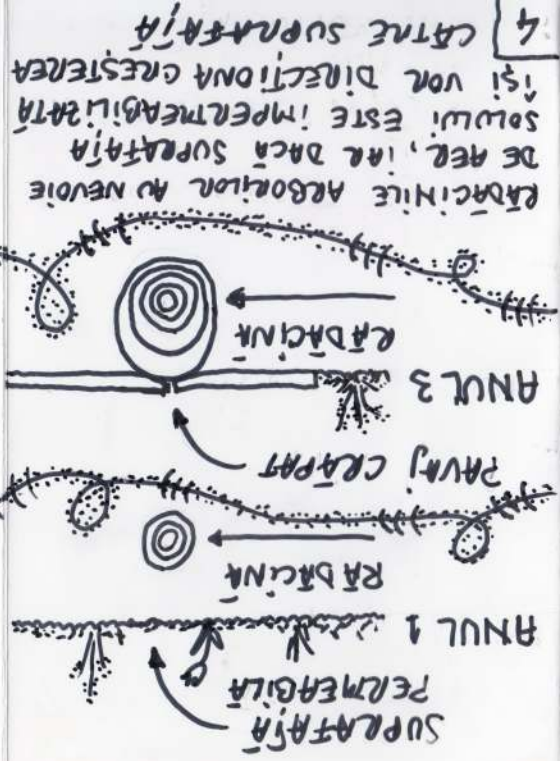 SUPRAFAȚĂ
PERMEABILĂ
ANUL 1
RĂDĂCINĂ
PAVAJ CRĂPAT
ANUL 3
RĂDĂCINĂ
RĂDĂCINILE ARBORILOR AU NEVOIE
DE AER, IAR DACĂ SUPRAFAȚA
SOLULUI ESTE IMPERMEABILIZATĂ
ÎȘI VOR DIRECȚIONA CREȘTEREA
CĂTRE SUPRAFAȚĂ
4